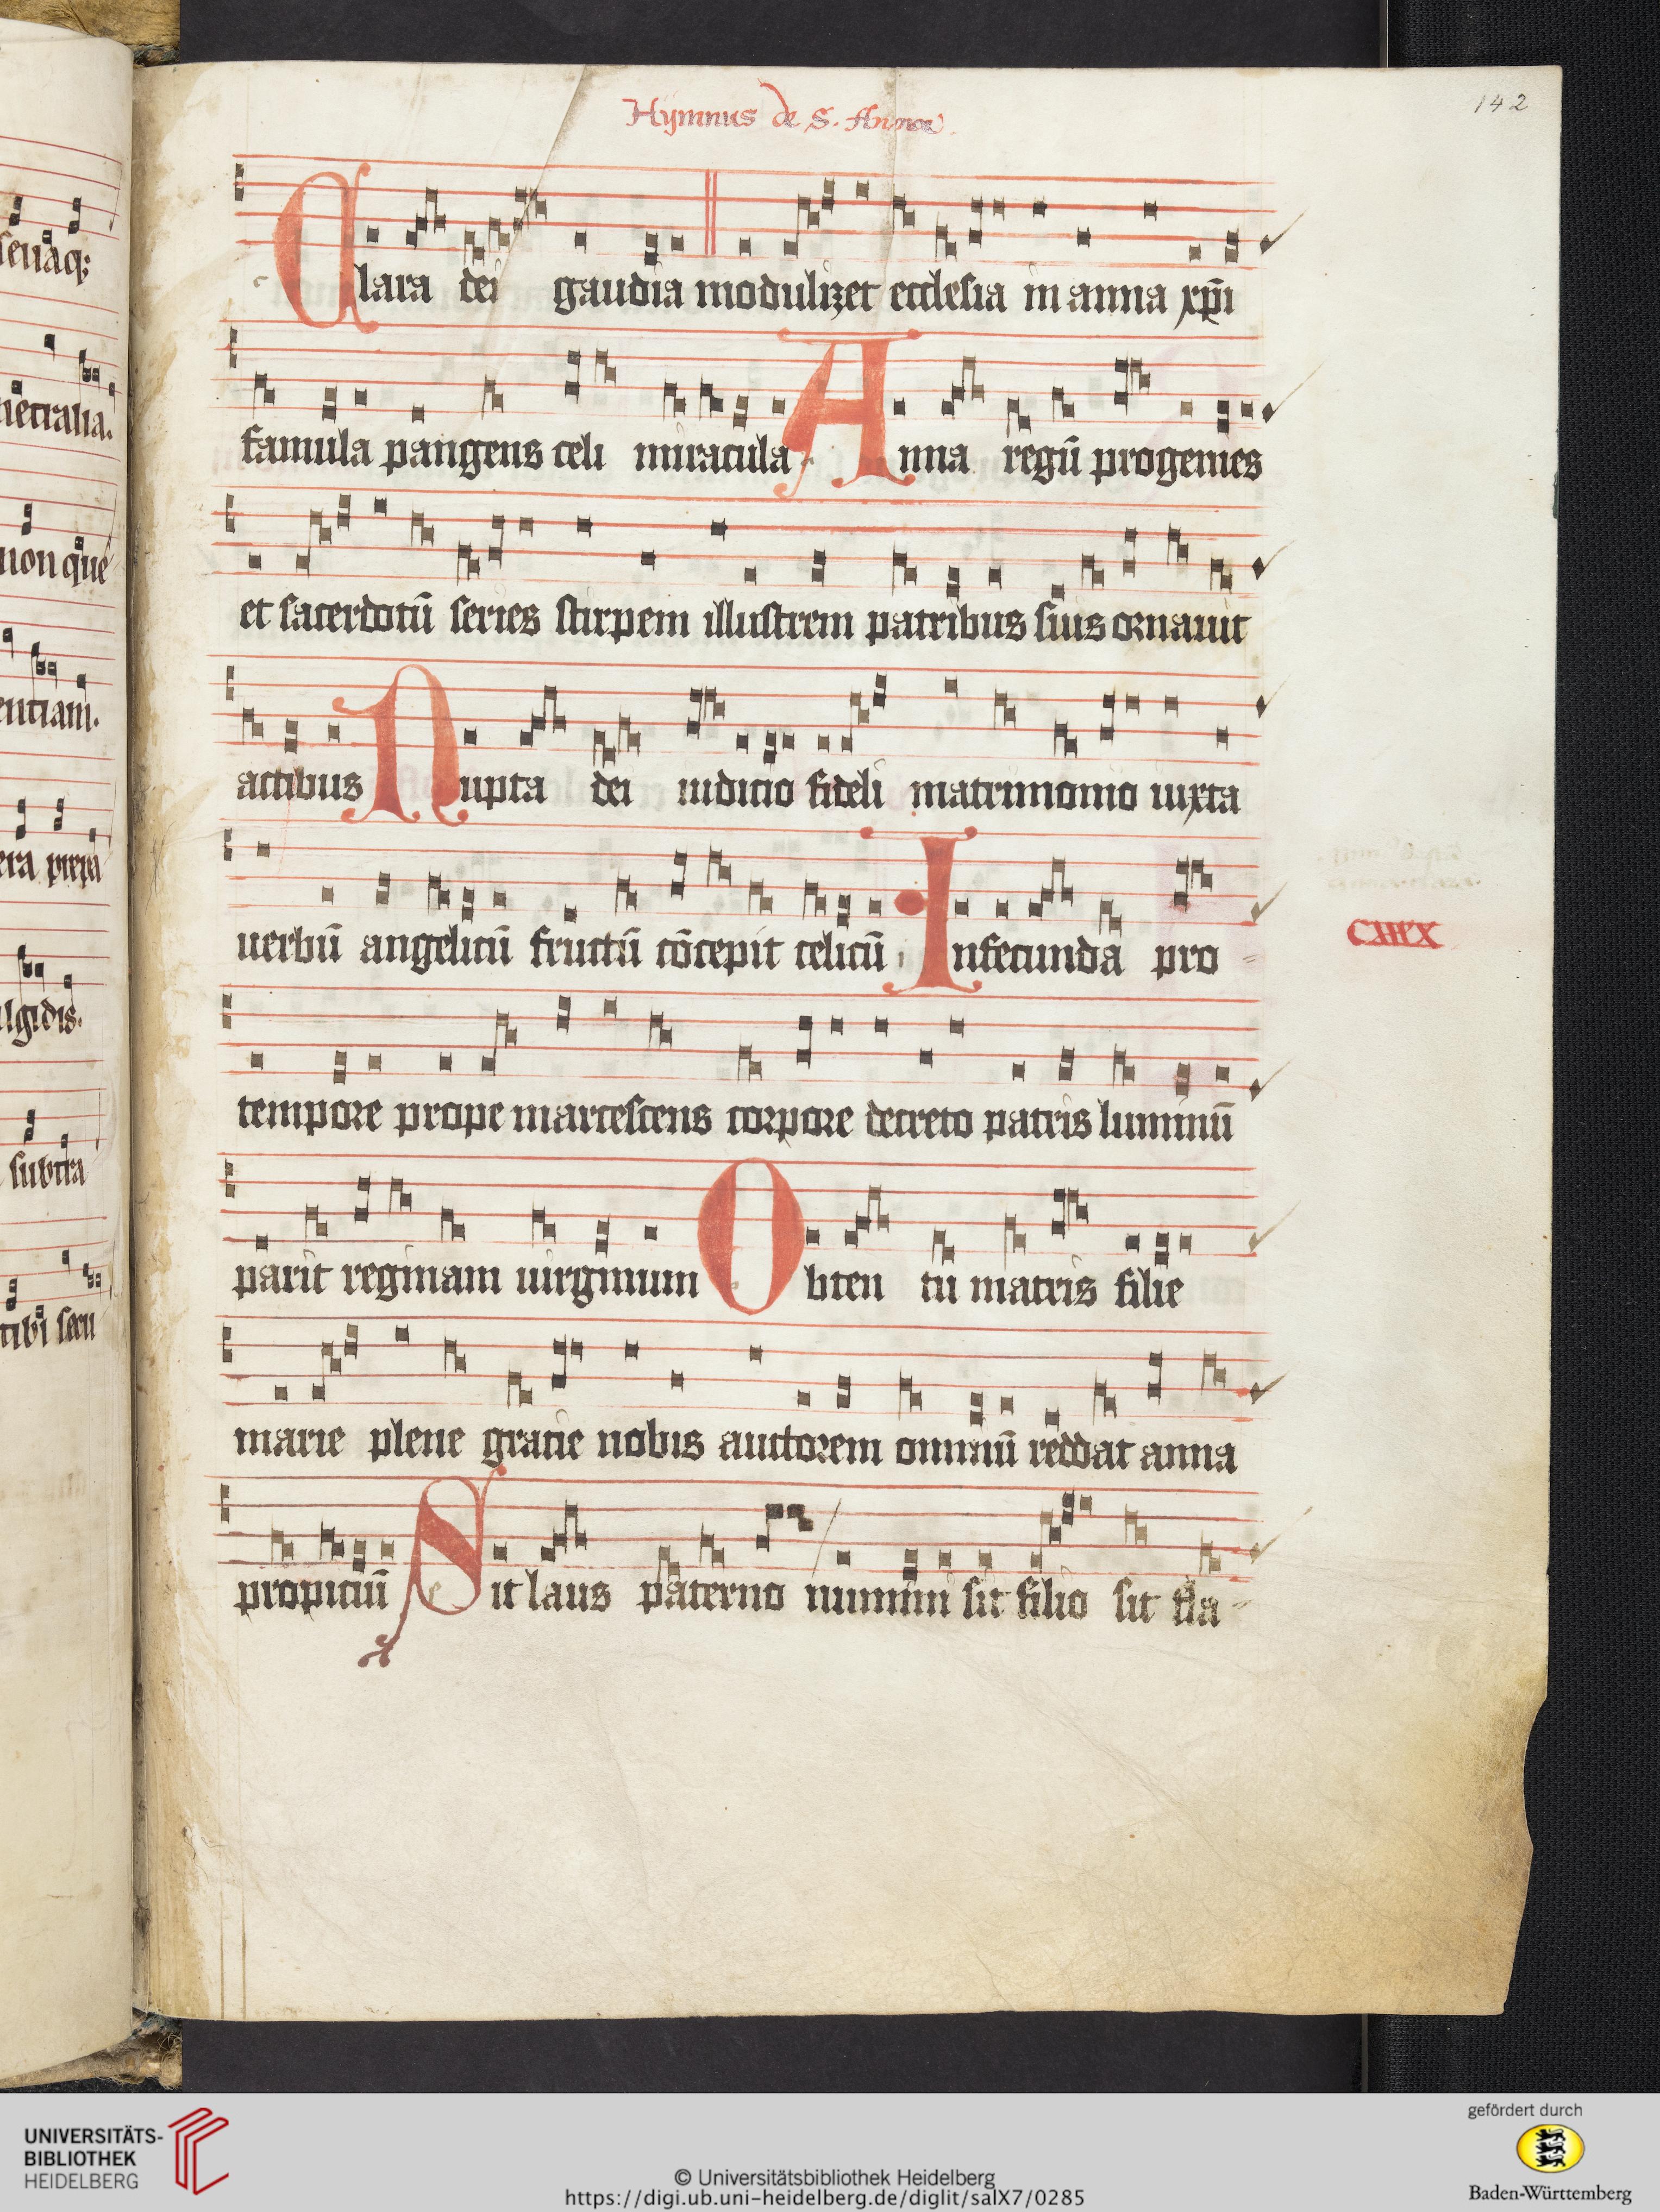 Hymnus de S. Anna
142
Clara dei gaudia modulizet ecclesia in anna xp̄i
famula pangens celi miracula Anna regū progenies
et sacerdotū series stirpem illustrem patribus suis ornauit
actibus Nupta dei iudicio fideli matrimonio iuxta
uerbū angelicū fructū cōcepit celicū Infecunda pro
CXIIX
tempore prope marcescens corpore decreto patris luminū
parit reginam uirginum Obten tu matris filie
marie plene gracie nobis auctorem omniū reddat anna
propiciū Sit laus paterno numini sit filio sit fla
seuaq;
tietralia.
non que
entiam.
era prepa
lgidis.
subtra
tibi secu
UNIVERSITÄTS-
BIBLIOTHEK
HEIDELBERG
© Universitätsbibliothek Heidelberg
https://digi.ub.uni-heidelberg.de/diglit/salX7/0285
gefördert durch
Baden-Württemberg